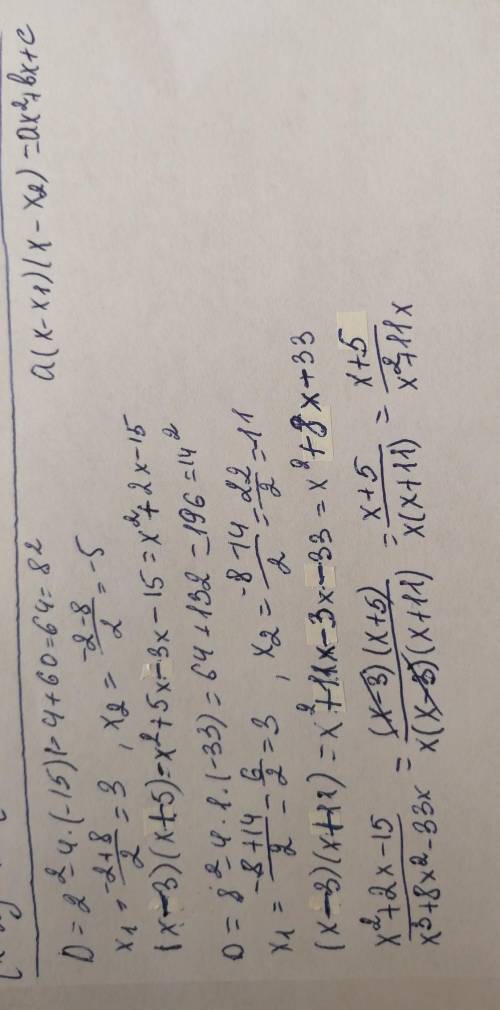 a(x-x1)(x-x2)=ax²+bx+c
D=2²-4·(-15)1=4+60=64=8²
x1=\frac{-2+8}{2}=3, x2=\frac{-2-8}{2}=-5
(x-3)(x+5)=x²+5x-3x-15=x²+2x-15
D=8²-4·1·(-33)=64+132=196=14²
x1=\frac{-8+14}{2}=\frac{6}{2}=3, x2=\frac{-8-14}{2}=\frac{-22}{2}=-11
(x-3)(x+11)=x²+11x-3x-33=x²+8x+33
\frac{x²+2x-15}{x³+8x²-33x}=\frac{(x-3)(x+5)}{x(x-3)(x+11)}=\frac{x+5}{x(x+11)}=\frac{x+5}{x²+11x}